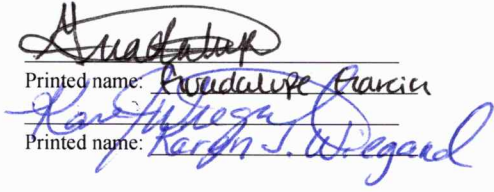 Guadalupe
Printed name: Guadalupe Garcia
Printed name: Karyn J. Wiegand